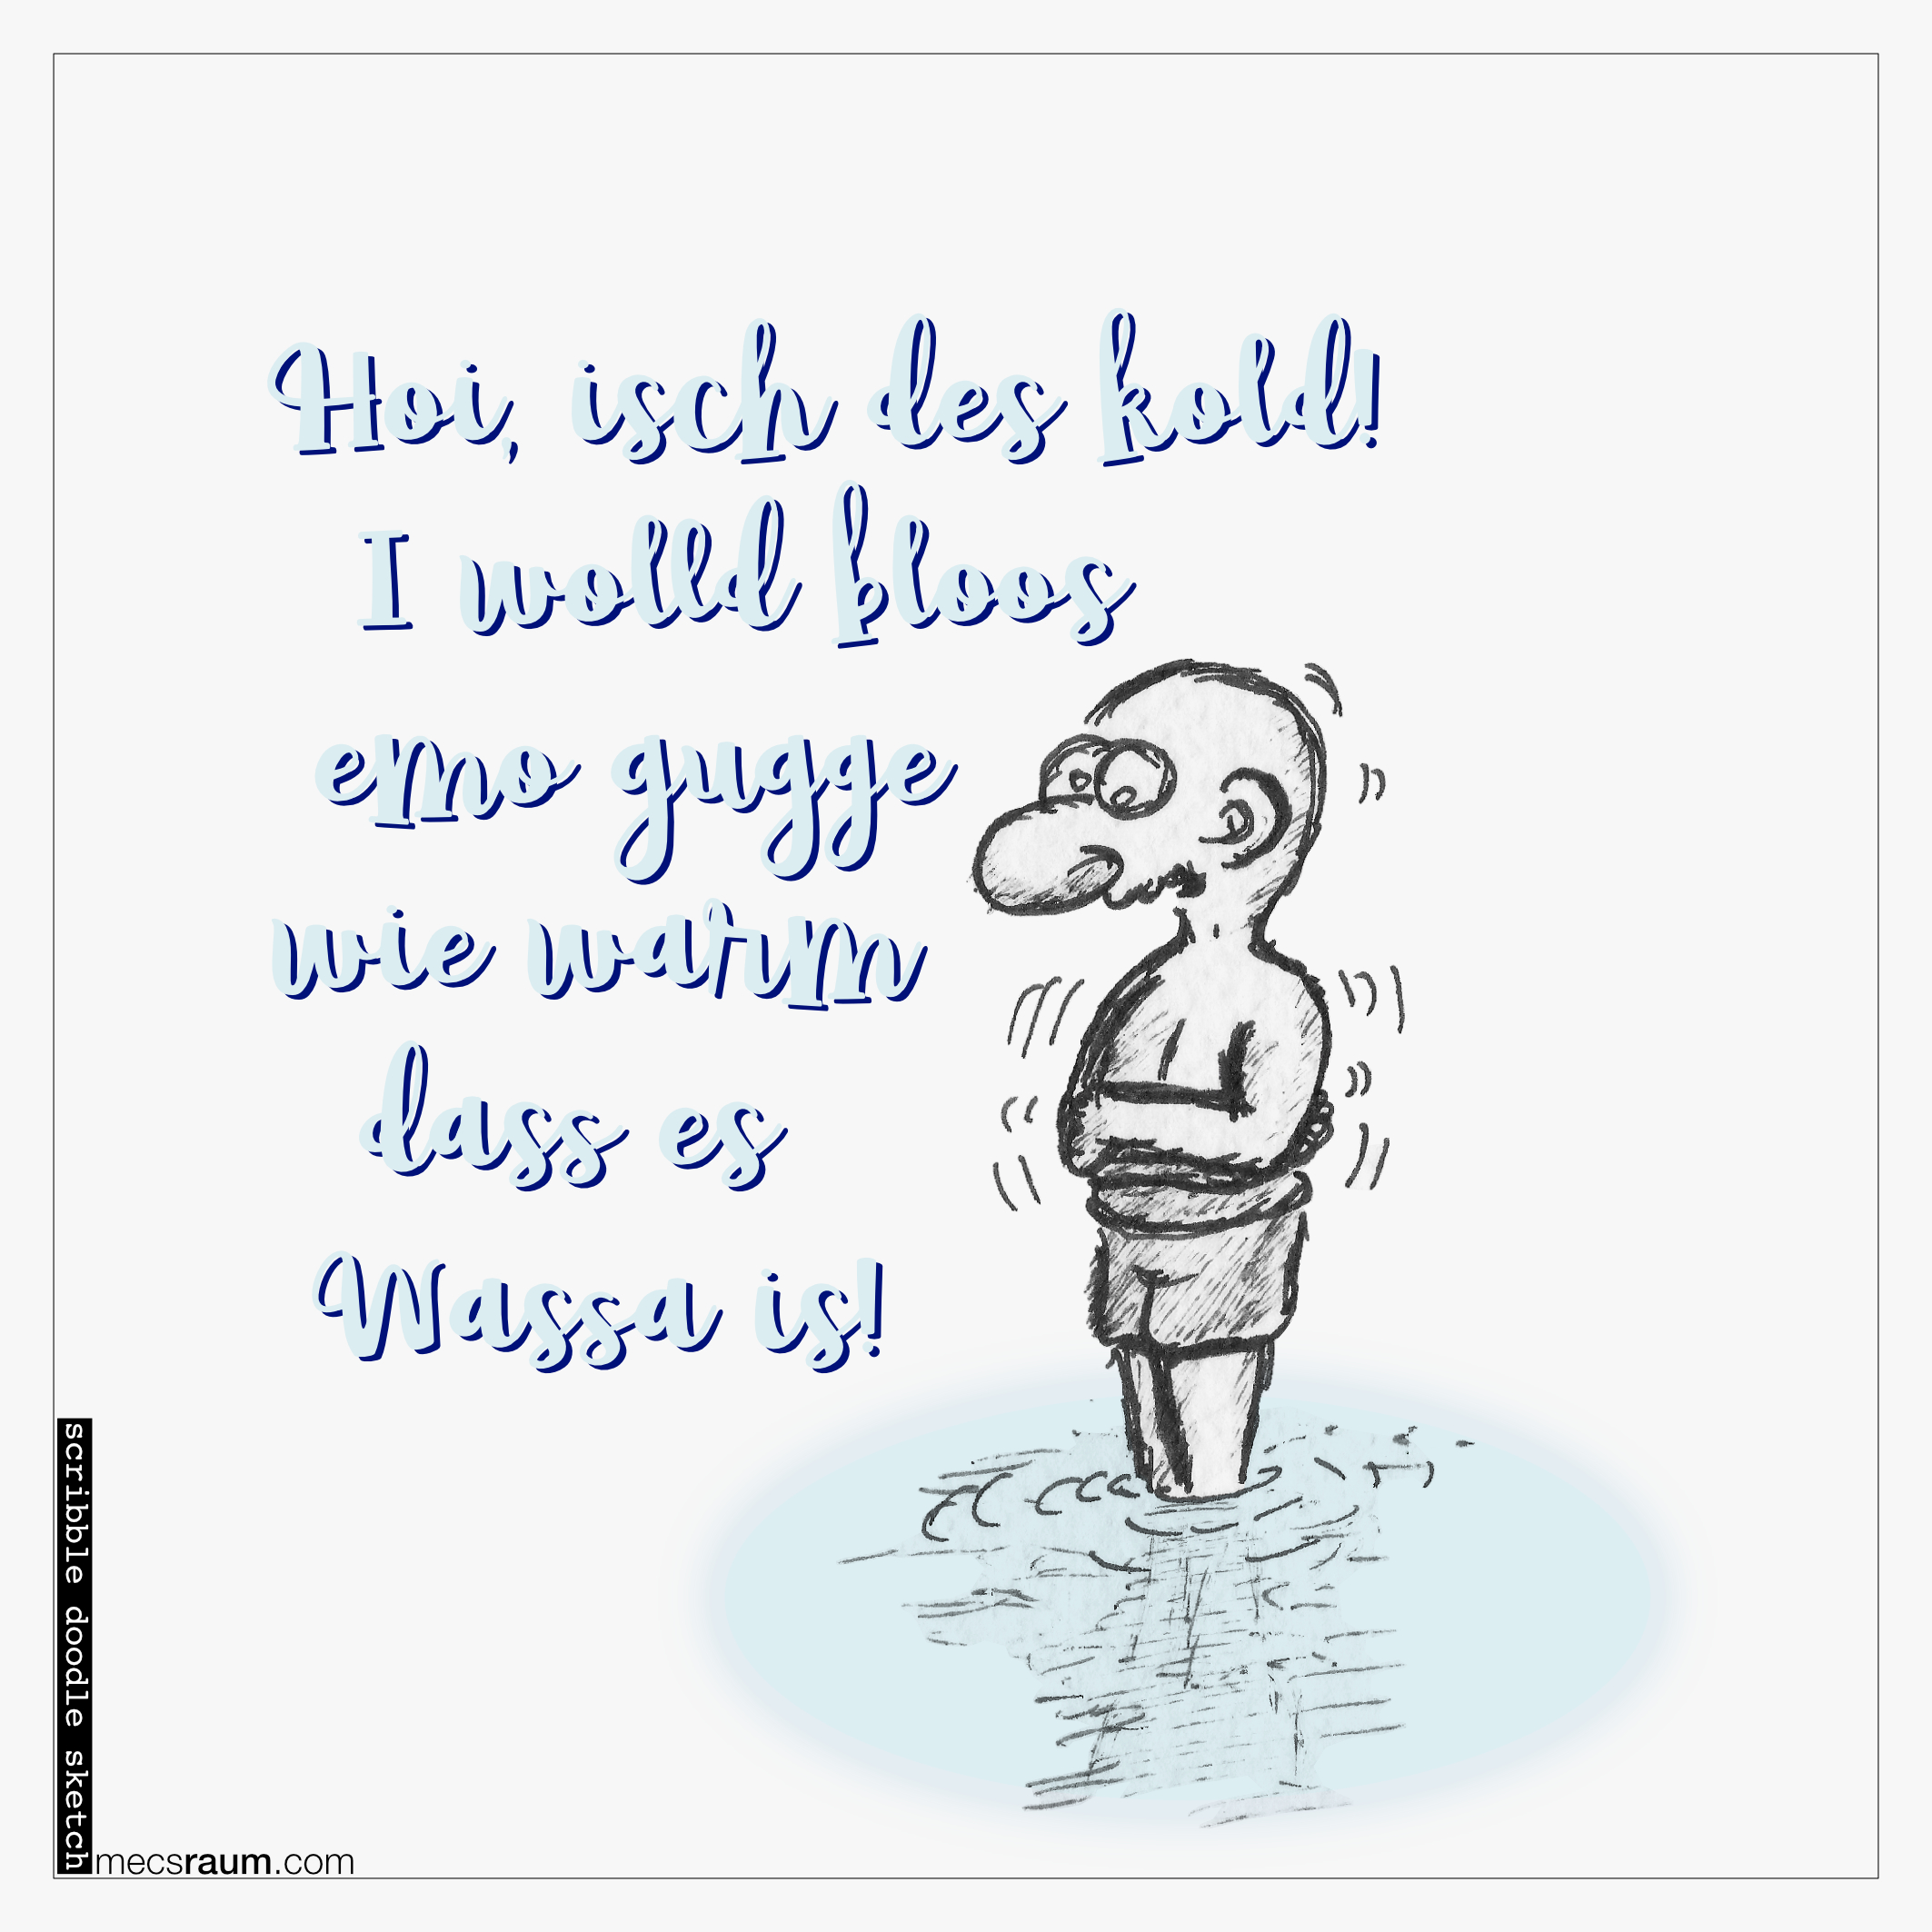 Hoi, isch des kold!
I wolld bloos
emo gugge
wie warm
dass es
Wassa is!
scribble doodle sketch
mecsraum.com